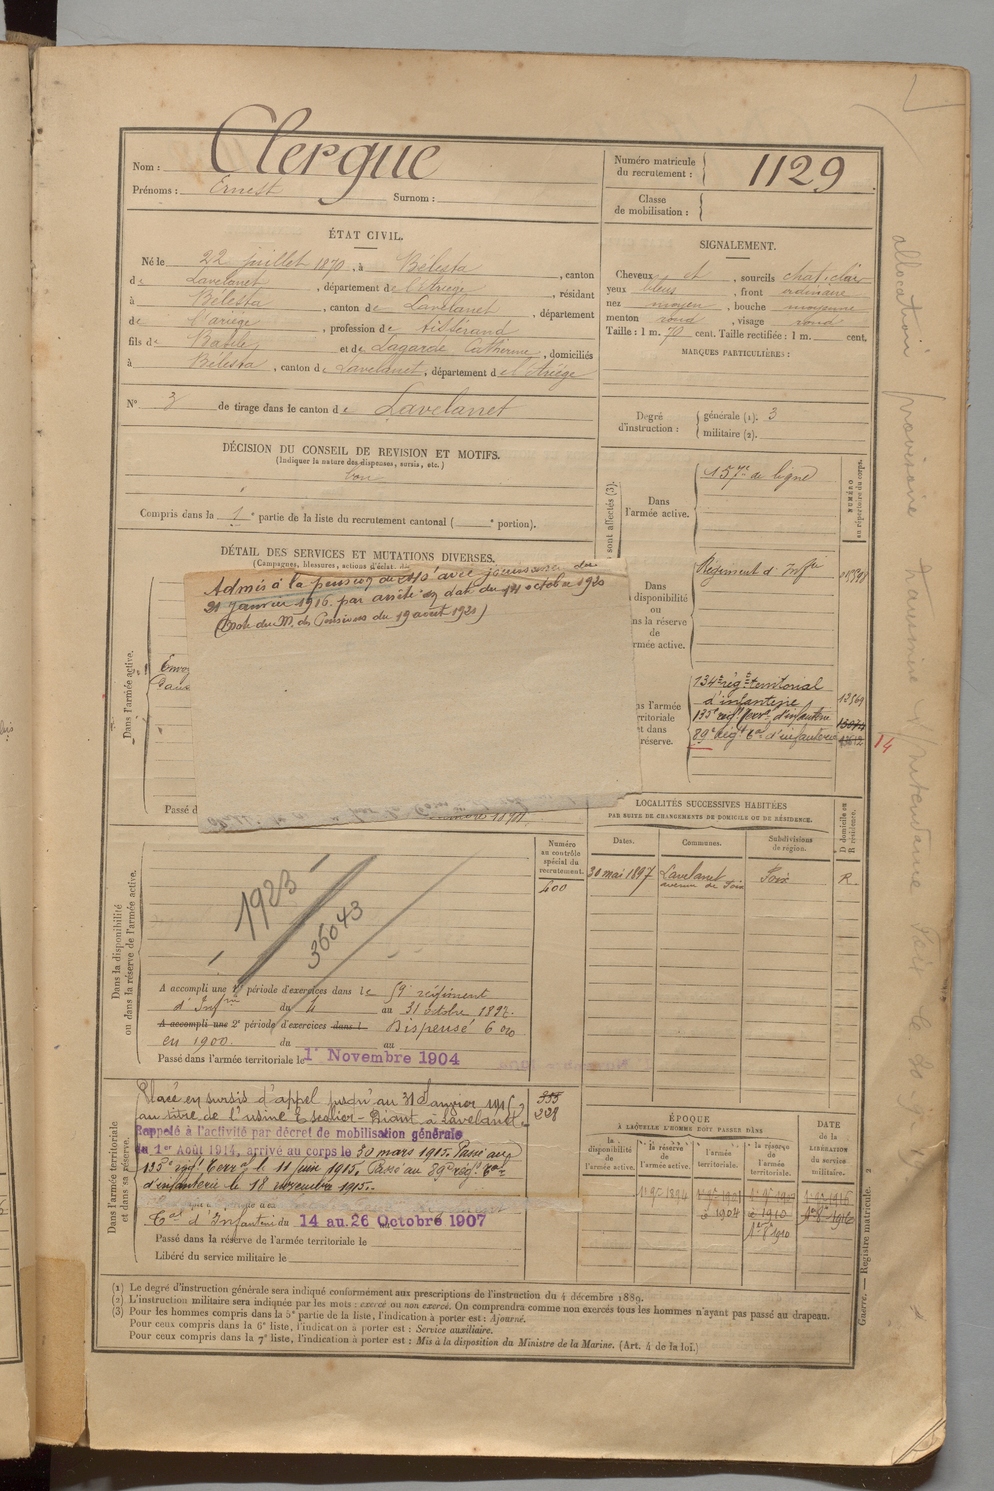 Nom : Clergue
Prénoms : Ernest Surnom :
Numéro matricule
du recrutement :
1129
Classe
de mobilisation :
ÉTAT CIVIL.
Né le 22 juillet 1870, à Bélesta, canton
de Lavelanet, département de l'Ariège, résidant
à Bélesta, canton de Lavelanet, département
de l'ariège, profession de tisserand
fils de Basile et de Lagarde Catherine, domiciliés
à Bélesta, canton de Lavelanet, département de l'Ariège
N° 3 de tirage dans le canton de Lavelanet
SIGNALEMENT.
Cheveux et, sourcils chat. clair
yeux bleus, front ordinaire
nez moyen, bouche moyenne
menton rond, visage rond
Taille : 1 m. 70 cent. Taille rectifiée : 1 m. cent.
MARQUES PARTICULIÈRES :
Degré
d'instruction :
générale (1). 3
militaire (2).
DÉCISION DU CONSEIL DE REVISION ET MOTIFS.
(Indiquer la nature des dispenses, sursis, etc.)
bon
Compris dans la 1e partie de la liste du recrutement cantonal ( e portion).
DÉTAIL DES SERVICES ET MUTATIONS DIVERSES.
(Campagnes, blessures, actions d'éclat,
Admis à la pension de avec jouissance du
31 janvier 1916 par arrêté en date du octobre 1920
(Note du M. des Pensions du 19 août 1920)
Dans l'armée active.
Envoy
Passé d
sont affectés (3).
NUMÉRO
au répertoire du corps.
Dans
l'armée active.
157e de ligne
Dans
disponibilité
ou
ns la réserve
de
rmée active.
Régiment d'Infie
ns l'armée
rritoriale
et dans
réserve.
134e régt territorial
d'infanterie
135e régt terrl d'infanterie
89e régt Tal d'infanterie
14
LOCALITÉS SUCCESSIVES HABITÉES
PAR SUITE DE CHANGEMENTS DE DOMICILE OU DE RÉSIDENCE.
Dates. Communes. Subdivisions
de région.
D domicile ou
R résidence.
30 mai 1897 Lavelanet Foix R
avenue de Foix
Numéro
au contrôle
spécial du
recrutement.
400
Dans la disponibilité
ou dans la réserve de l'armée active.
1923
36043
A accompli une 1e période d'exercices dans le 59e régiment
d'Infrie du 4 au 31 octobre 1897.
A accompli une 2e période d'exercices dans l Dispensé
en 1900. du au
Passé dans l'armée territoriale le 1er Novembre 1904
Dans l'armée territoriale
et dans sa réserve.
Placé en sursis d'appel jusqu'au 31 Janvier
au titre de l'usine Escolier-Diant à Lavelanet.
Rappelé à l'activité par décret de mobilisation générale
du 1er Août 1914, arrivé au corps le 30 mars 1915. Passé au
135e régt Terral le 11 juin 1915. Passé au 89e régt Tal
d'infanterie le 18 novembre 1915.
Tal d'Infanterie du 14 au 26 Octobre 1907
Passé dans la réserve de l'armée territoriale le
Libéré du service militaire le
ÉPOQUE
À LAQUELLE L'HOMME DOIT PASSER DANS
la
disponibilité
de
l'armée active.
la réserve
de
l'armée active.
l'armée
territoriale.
la réserve
de
l'armée
territoriale.
DATE
de la
LIBÉRATION
du service
militaire.
(1) Le degré d'instruction générale sera indiqué conformément aux prescriptions de l'instruction du 4 décembre 1889.
(2) L'instruction militaire sera indiquée par les mots : exercé ou non exercé. On comprendra comme non exercés tous les hommes n'ayant pas passé au drapeau.
(3) Pour les hommes compris dans la 5e partie de la liste, l'indication à porter est : Ajourné.
Pour ceux compris dans la 6e liste, l'indication à porter est : Service auxiliaire.
Pour ceux compris dans la 7e liste, l'indication à porter est : Mis à la disposition du Ministre de la Marine. (Art. 4 de la loi.)
Guerre. — Registre matricule. 2
allocation provisoire transmise